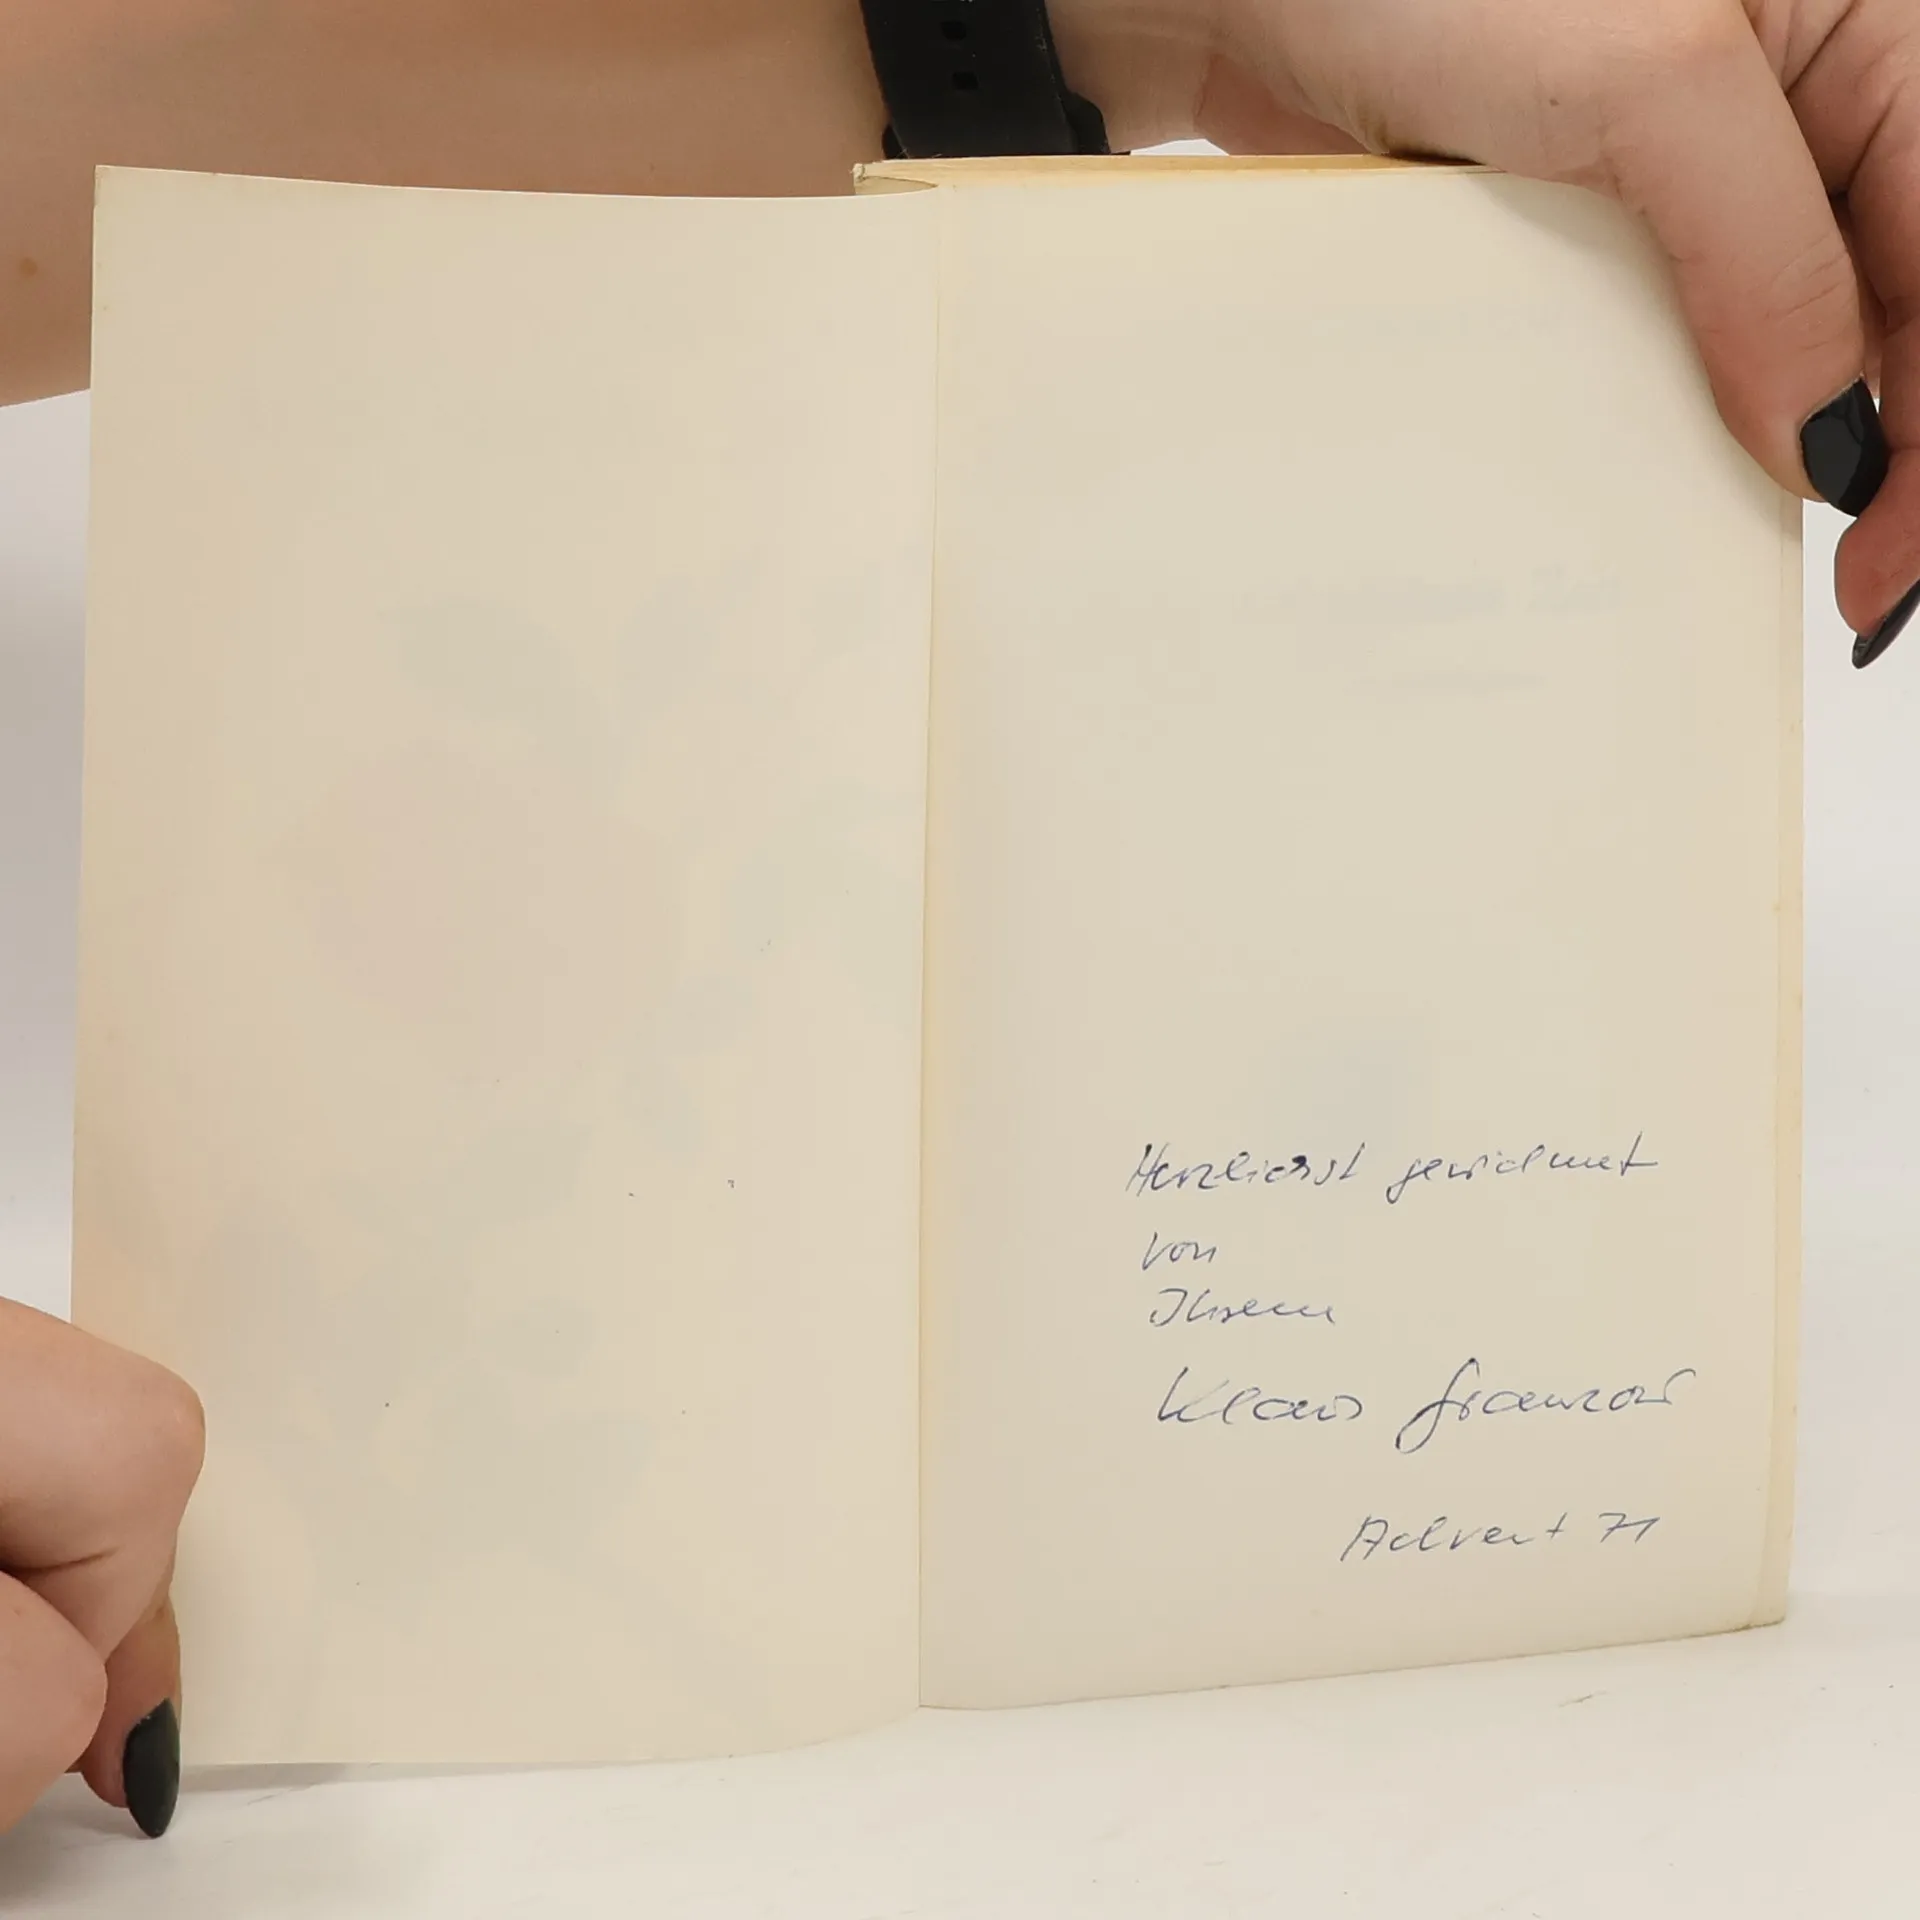 Herzlichst gewidmet
von
Ihrem
Klaus Granzow
Advent 71